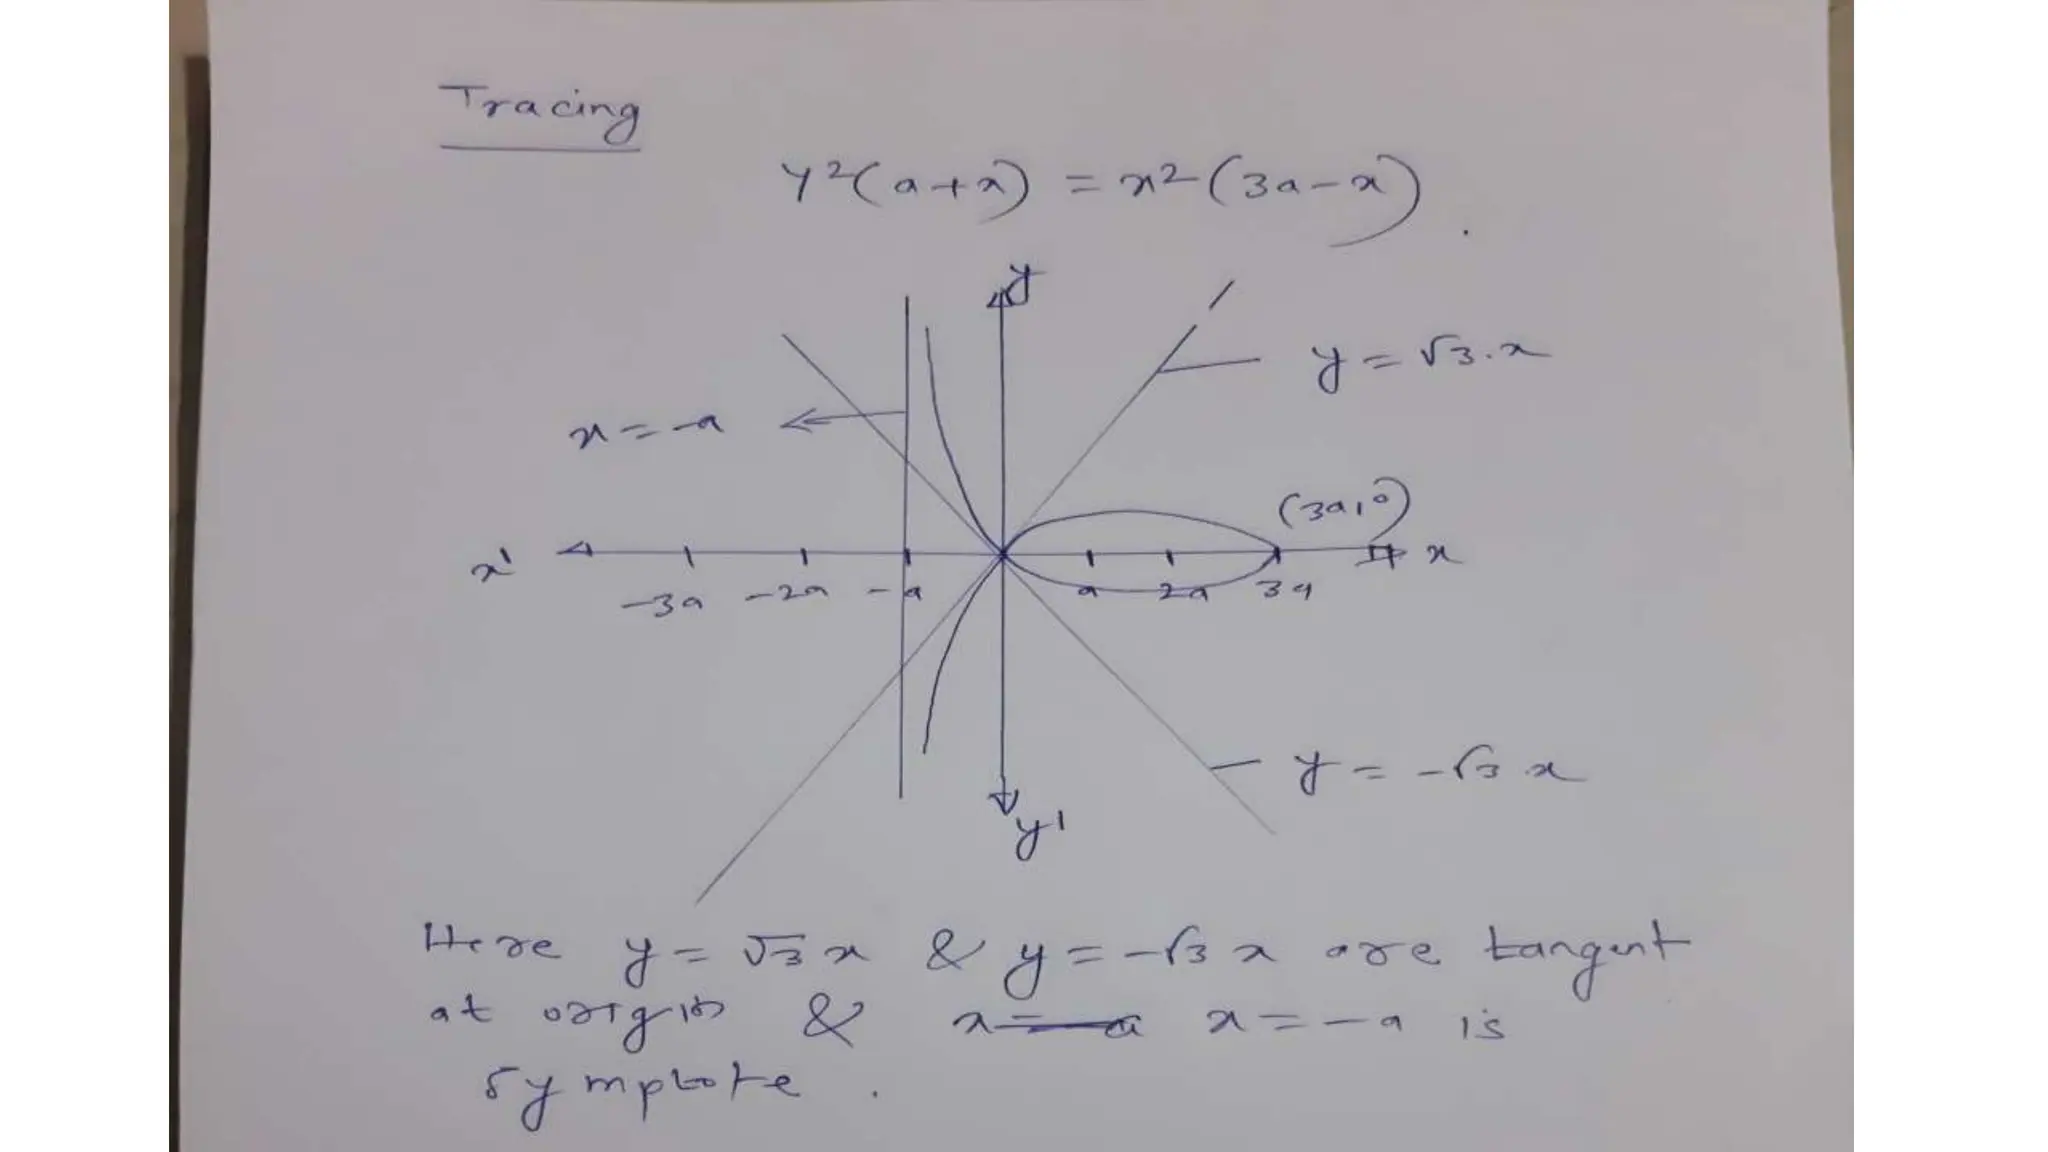 Tracing
y²(a+x) = x²(3a-x).
y
y = √3.x
x = -a
(3a,0)
x' x
-3a -2a -a a 2a 3a
y = -√3 x
y'
Here y = √3 x & y = -√3 x are tangent
at origin & x = -a is
symptote.